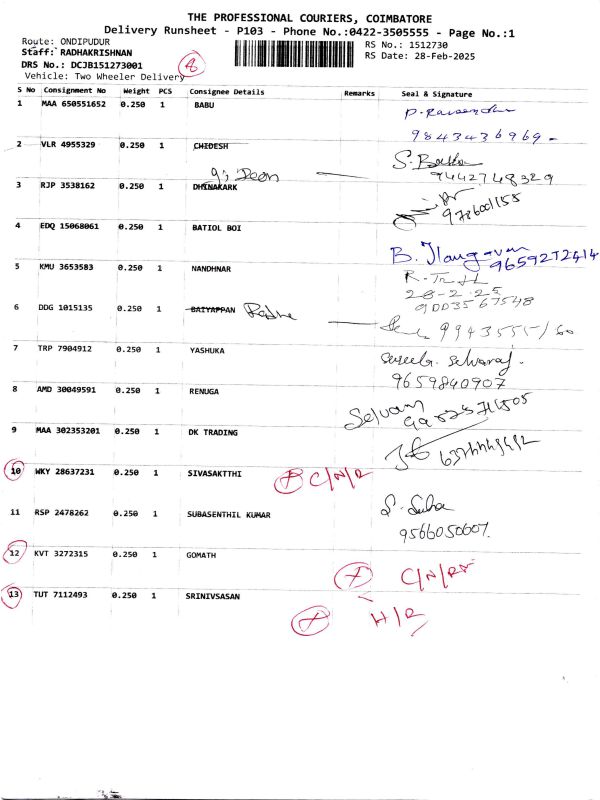 THE PROFESSIONAL COURIERS, COIMBATORE
Delivery Runsheet - P103 - Phone No.:0422-3505555 - Page No.:1
Route: ONDIPUDUR
RS No.: 1512730
Staff: RADHAKRISHNAN
RS Date: 28-Feb-2025
DRS No.: DCJB151273001
8
Vehicle: Two Wheeler Delivery
S No Consignment No Weight PCS Consignee Details Remarks Seal & Signature
1 MAA 650551652 0.250 1 BABU
9843436969
2 VLR 4955329 0.250 1 CHIDESH
9442748329
3 RJP 3538162 0.250 1 DHINAKARK
4 EDQ 15068061 0.250 1 BATIOL BOI
B. Ilangovan
9659272414
5 KMU 3653583 0.250 1 NANDHNAR
28-2-25
9003567548
6 DDG 1015135 0.250 1 BAIYAPPAN
7 TRP 7904912 0.250 1 YASHUKA
9659840907
8 AMD 30049591 0.250 1 RENUGA
Selvam
9 MAA 302353201 0.250 1 DK TRADING
10 WKY 28637231 0.250 1 SIVASAKTTHI C/N/R
11 RSP 2478262 0.250 1 SUBASENTHIL KUMAR S. Suba
9566050607.
12 KVT 3272315 0.250 1 GOMATH
C/N/R
13 TUT 7112493 0.250 1 SRINIVSASAN
H/R